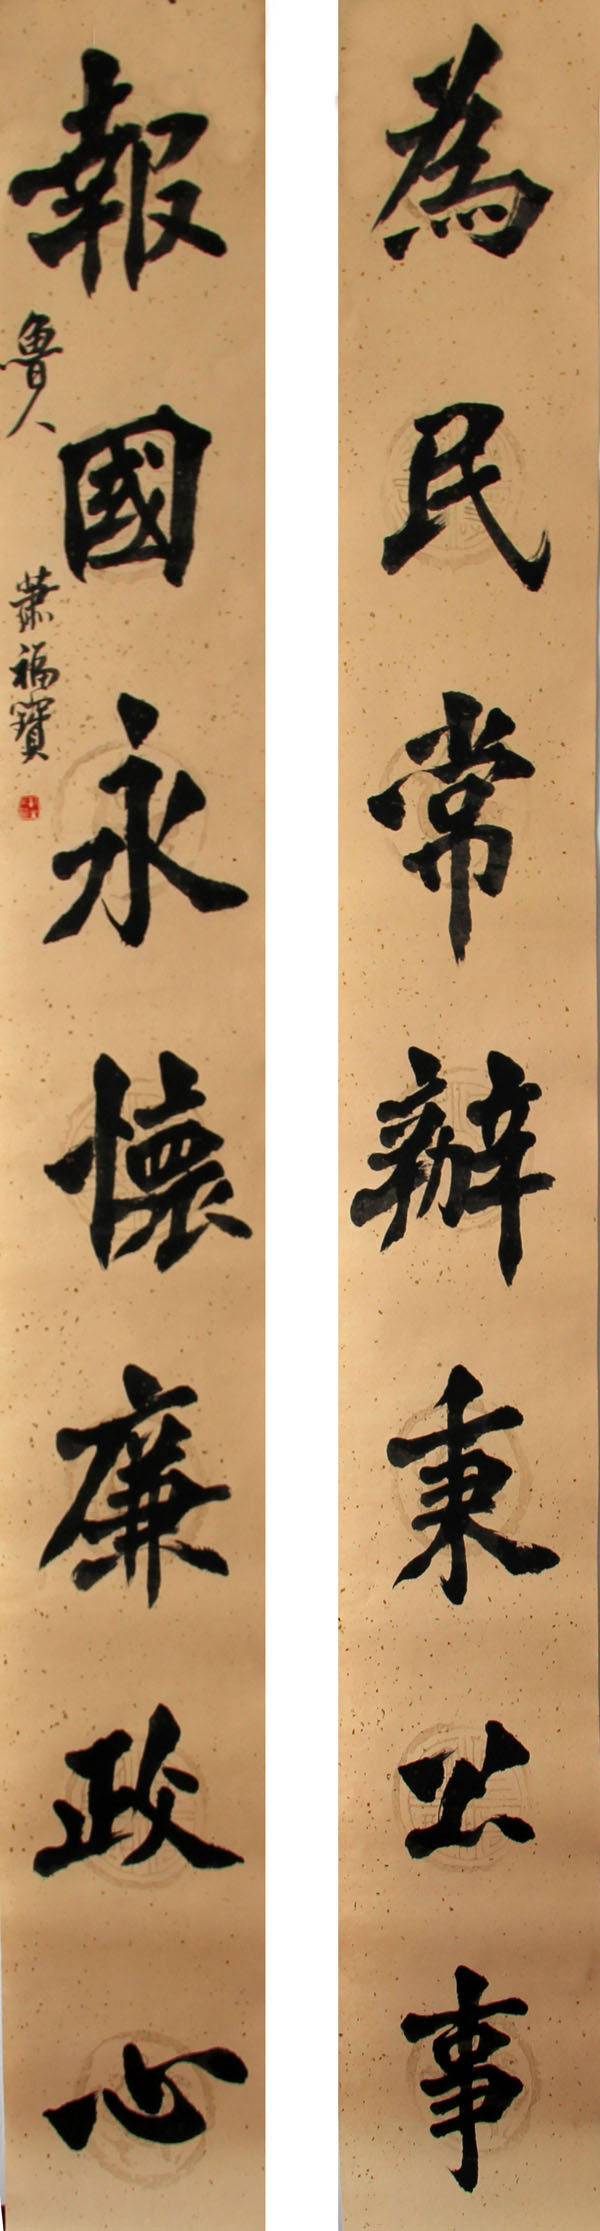 為民常辦秉公事
報國永懷廉政心
魯人 蕭福寶